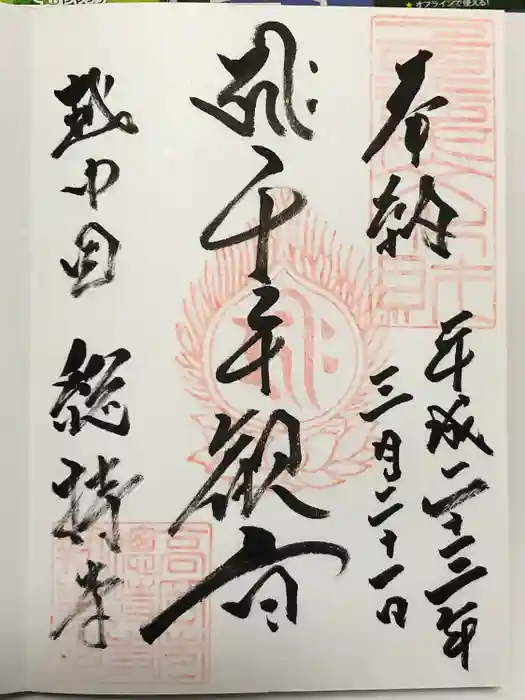 ★ オフラインで使える!
奉納
平成二十三年
三月二十一日
千手観音
越中国 総持寺